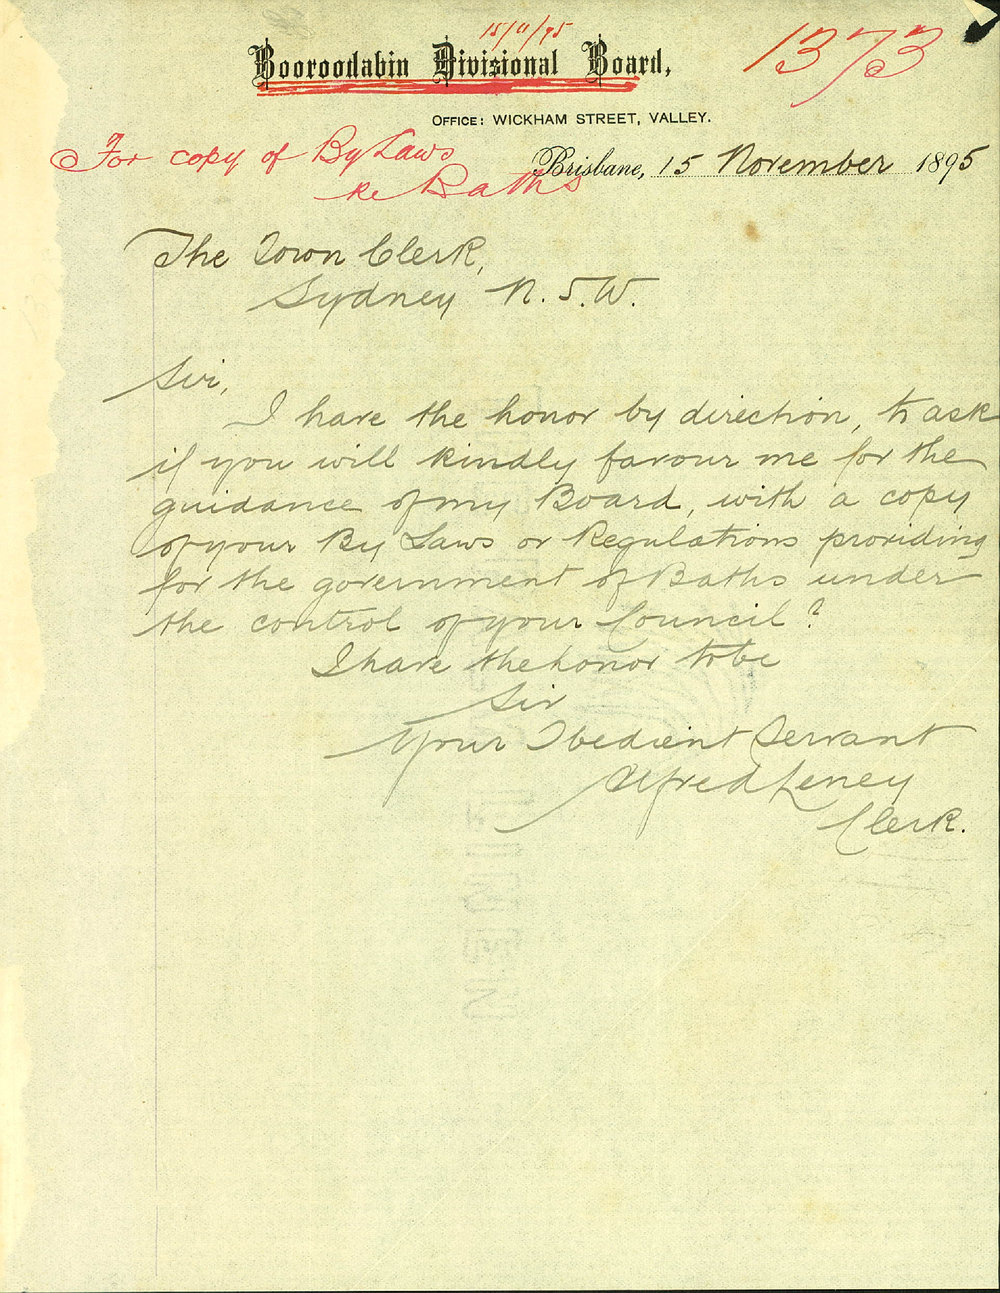 15/11/95
1373
Booroodabin Divisional Board,
OFFICE: WICKHAM STREET, VALLEY.
For copy of By Laws
re Baths
Brisbane, 15 November 1895
The Town Clerk,
Sydney N.S.W.
Sir,
I have the honor by direction, to ask
if you will kindly favour me for the
guidance of my Board, with a copy
of your By Laws or Regulations providing
for the government of Baths under
the control of your Council?
I have the honor to be
Sir
Your Obedient Servant
Alfred Leney
Clerk.